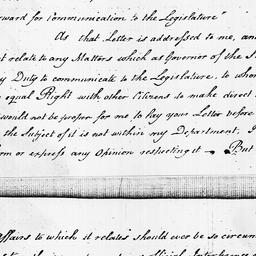 rward for Communication to the Legislature"
As that Letter is addressed to me, an
t relate to any Matters which as Governor of the S
y Duty to communicate to the Legislature, to whom
equal Right with other Citizens to make direct
would not be proper for me to lay your Letter before
the Subject of it is not within my Department, I
orm or express any Opinion respecting it — But
Affairs to which it relates should ever be so circum
official Interference